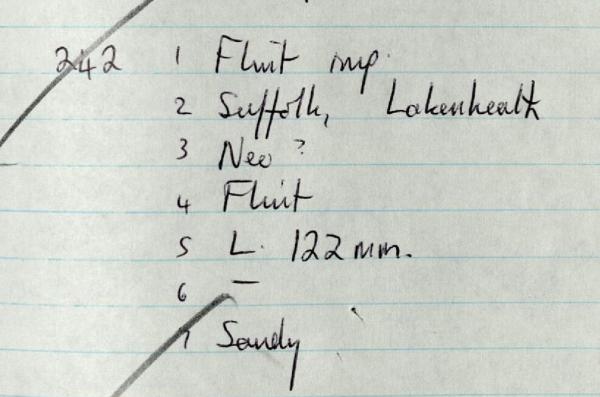 242 1 Flint imp.
2 Suffolk, Lakenheath
3 Neo?
4 Flint
5 L. 122mm.
6 —
7 Sandy